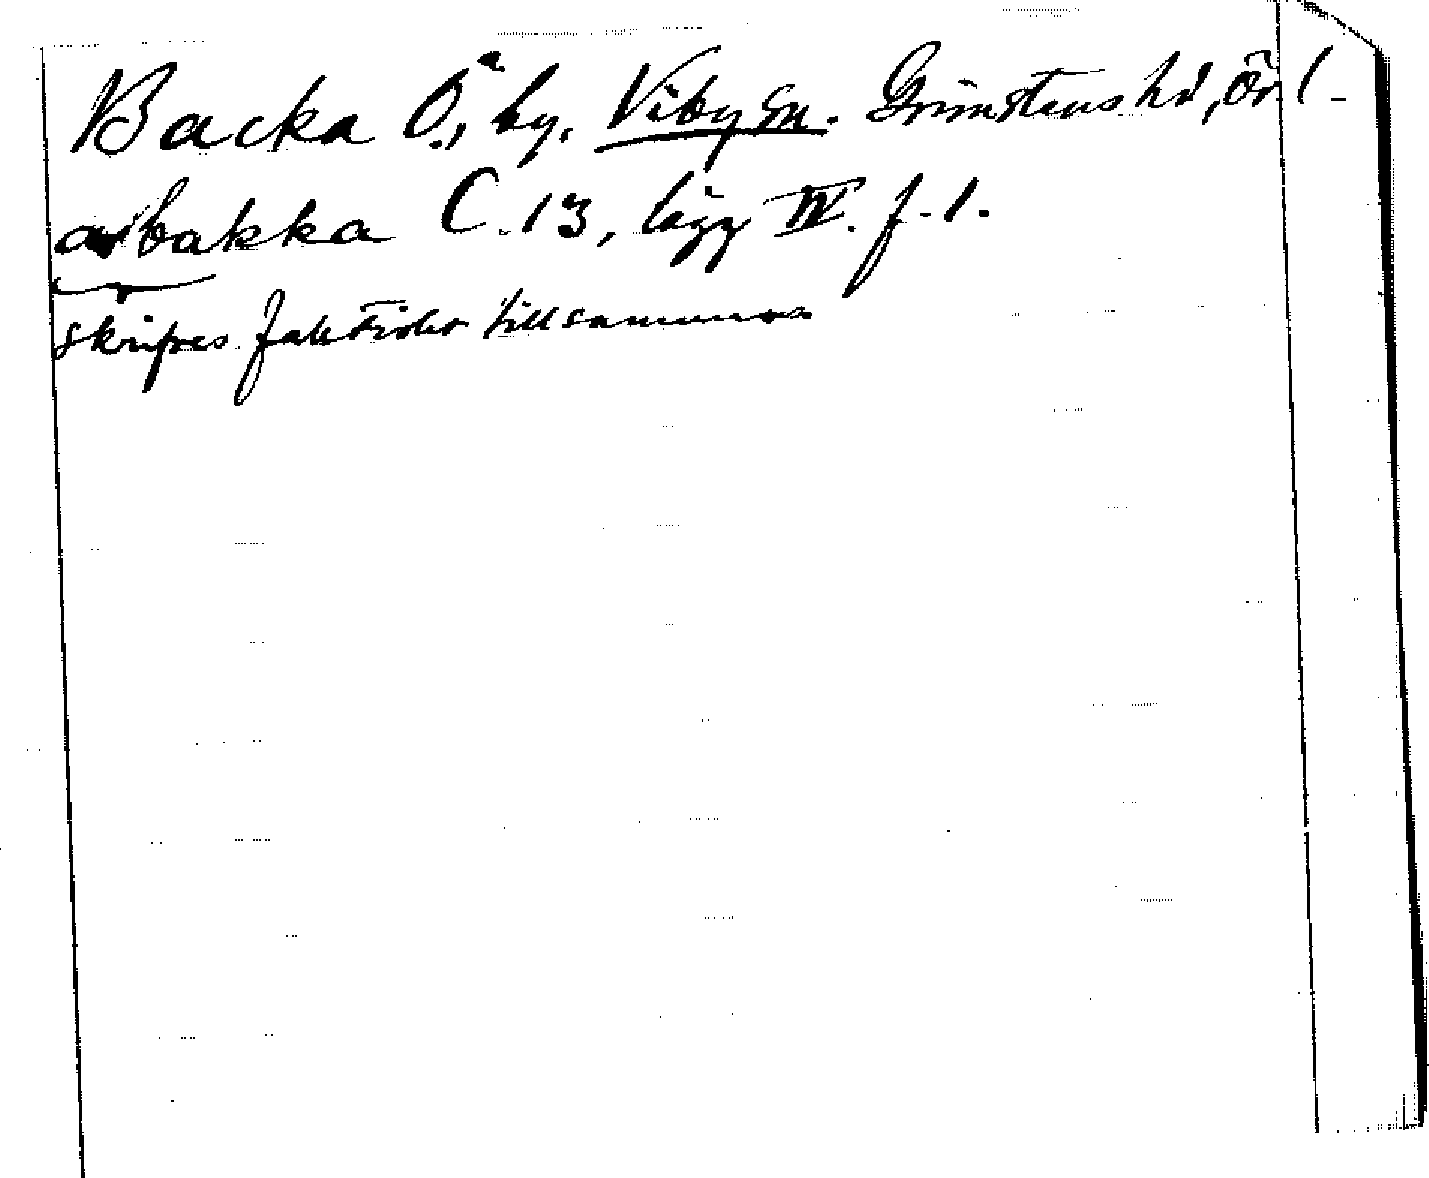 Backa Ö., by. Viby sn. Grimstens hd, Ör. l.
bakka C. 13, lägg IV. f. 1.
skrifves faktiskt tillsammans